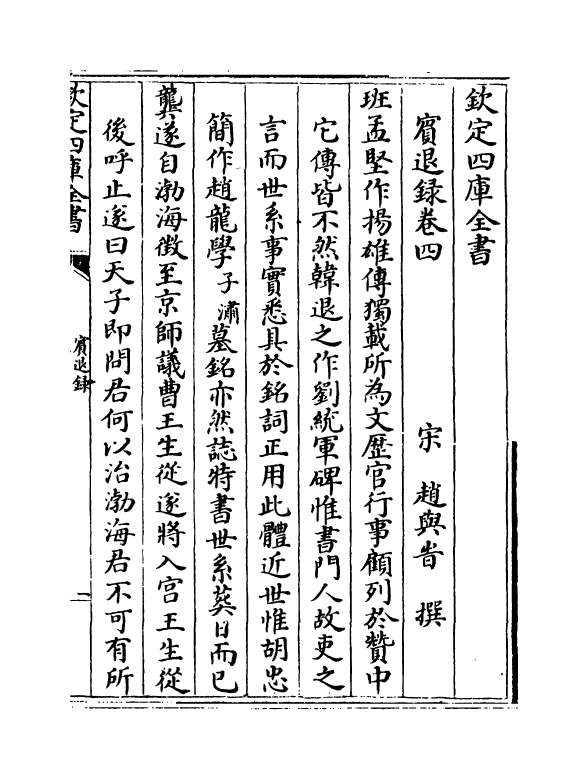 欽定四庫全書
賓退錄卷四
宋 趙與旹 撰
班孟堅作揚雄傳獨載所為文歴官行事顧列於贊中
它傳皆不然韓退之作劉統軍碑惟書門人故吏之
言而世系事實悉具於銘詞正用此體近世惟胡忠
簡作趙龍學子潚墓銘亦然誌特書世系葬日而已
龔遂自渤海徴至京師議曹王生從遂將入宫王生從
後呼止遂曰天子即問君何以治渤海君不可有所
欽定四庫全書
賓退錄
一